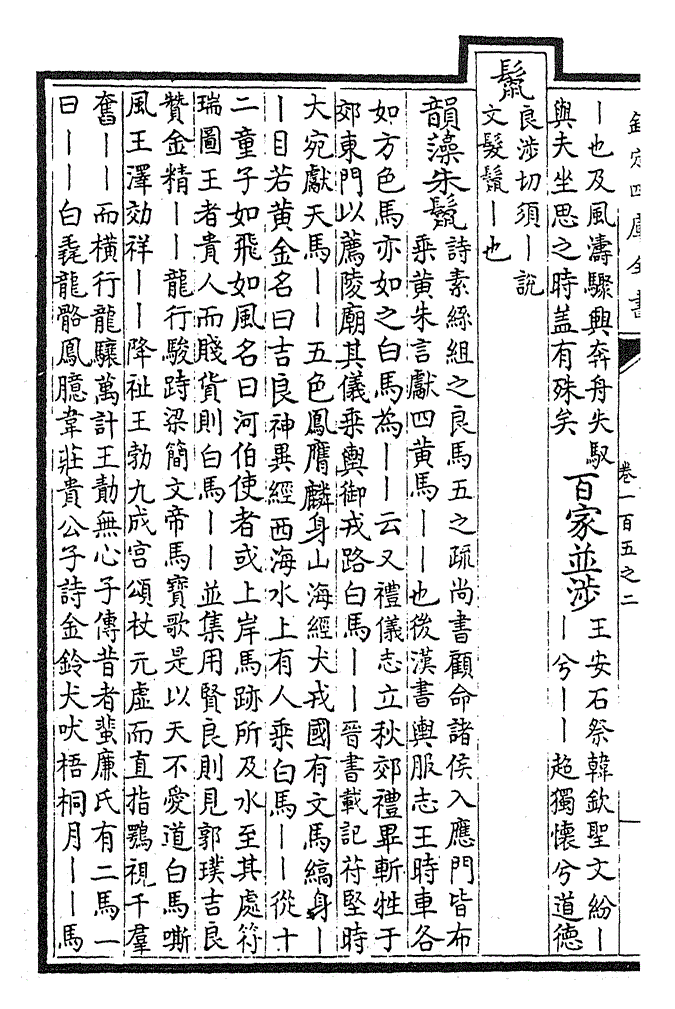 欽定四庫全書
卷一百五之二
丨也及風濤驟興奔舟失馭
與夫坐思之時蓋有殊矣
百家並涉
王安石祭韓欽聖文紛丨
丨兮丨丨超獨懷兮道德
鬛
良涉切須丨說
文髮鬛丨也
韻藻朱鬛
詩素絲組之良馬五之疏尚書顧命諸侯入應門皆布
乘黃朱言獻四黃馬丨丨也後漢書輿服志王時車各
如方色馬亦如之白馬為丨丨云又禮儀志立秋郊禮畢斬牲于
郊東門以薦陵廟其儀乘輿御戎路白馬丨丨晉書載記苻堅時
大宛獻天馬丨丨五色鳳膺麟身山海經犬戎國有文馬縞身丨
丨目若黃金名曰吉良神異經西海水上有人乘白馬丨丨從十
二童子如飛如風名曰河伯使者或上岸馬跡所及水至其處符
瑞圖王者貴人而賤貨則白馬丨丨並集用賢良則見郭璞吉良
贊金精丨丨龍行駿跱梁簡文帝馬寶歌是以天不愛道白馬嘶
風王澤効祥丨丨降祉王勃九成宮頌杖元虛而直指鶚視千羣
奮丨丨而橫行龍驤萬計王勣無心子傳昔者蜚廉氏有二馬一
曰丨丨白毳龍骼鳳臆韋莊貴公子詩金鈴犬吠梧桐月丨丨馬